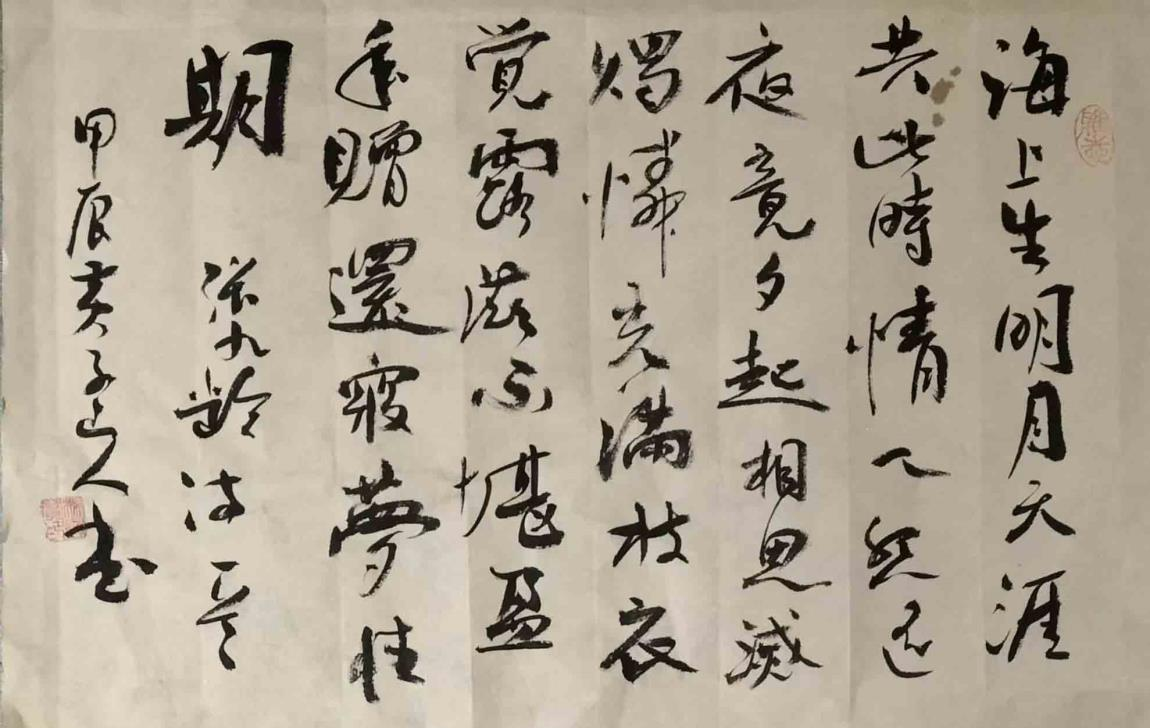 海上生明月天涯
共此時情人怨遥
夜竟夕起相思滅
燭憐光滿披衣
覚露滋不堪盈
手贈還寢夢佳
期 張九齡诗一首
甲辰黄子山人书